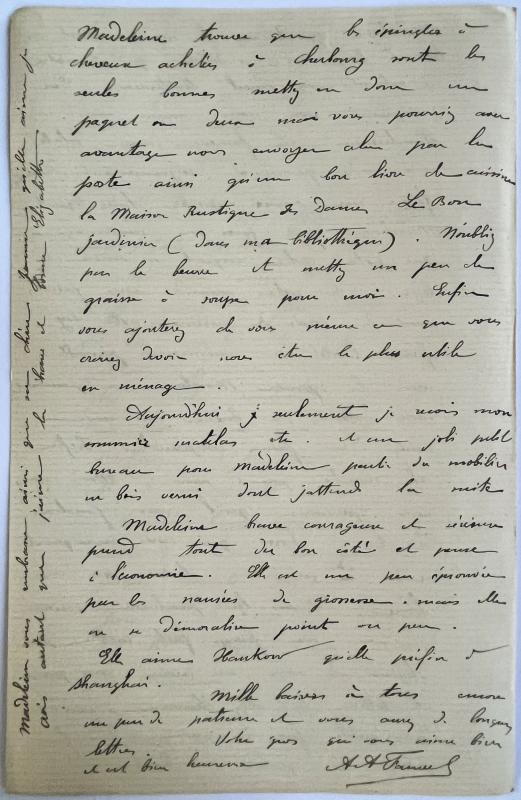 Madeleine trouve que les épingles à
cheveux achetées à Cherbourg sont les
seules bonnes mettez en donc un
paquet ou deux mais vous pourriez avec
avantage nous envoyer cela par la
poste ainsi qu'un bon livre de cuisine
la Maison Rustique des Dames Le Bon
jardinier (dans ma bibliothèque). N'oubliez
pas le beurre et mettez un peu de
graisse à soupe pour moi. Enfin
vous ajouterez de vous même ce que vous
croirez devoir nous être le plus utile
en ménage.
Aujourd'hui seulement je reçois mon
sommier matelas etc. et un joli petit
bureau pour Madeleine partie du mobilier
en bois verni dont j'attends la suite
Madeleine brave courageuse et sérieuse
prend tout du bon côté et pense
à l'économie. Elle est un peu éprouvée
par les nausées de grossesse. mais elle
ne se démoralise point ou peu.
Elle aime Hankow qu'elle préfère à
Shanghai.
Mille baisers à tous encore
un peu de patience et vous aurez de longues
lettres. Votre gros qui vous aime bien
et est bien heureux
Madeleine vous embrasse ainsi que sa chère qu'elle aime je
crois autant que j'aime la bonne Elisabeth